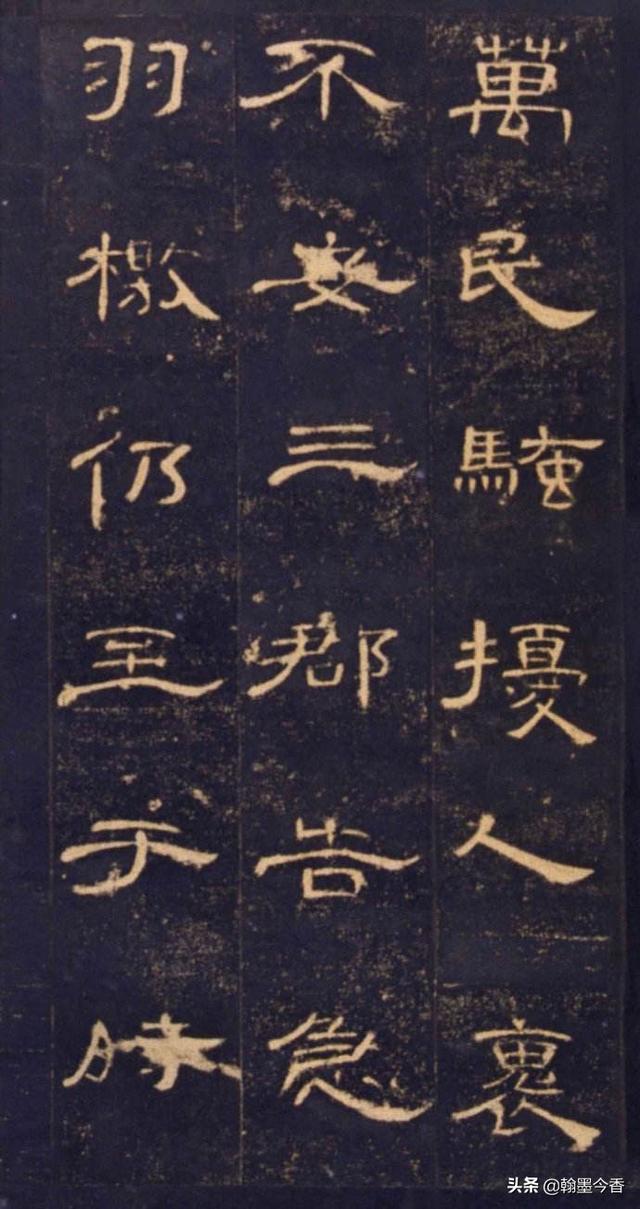 萬民騷擾人裹
不安三郡告急
羽檄仍至于時
头条 @翰墨今香